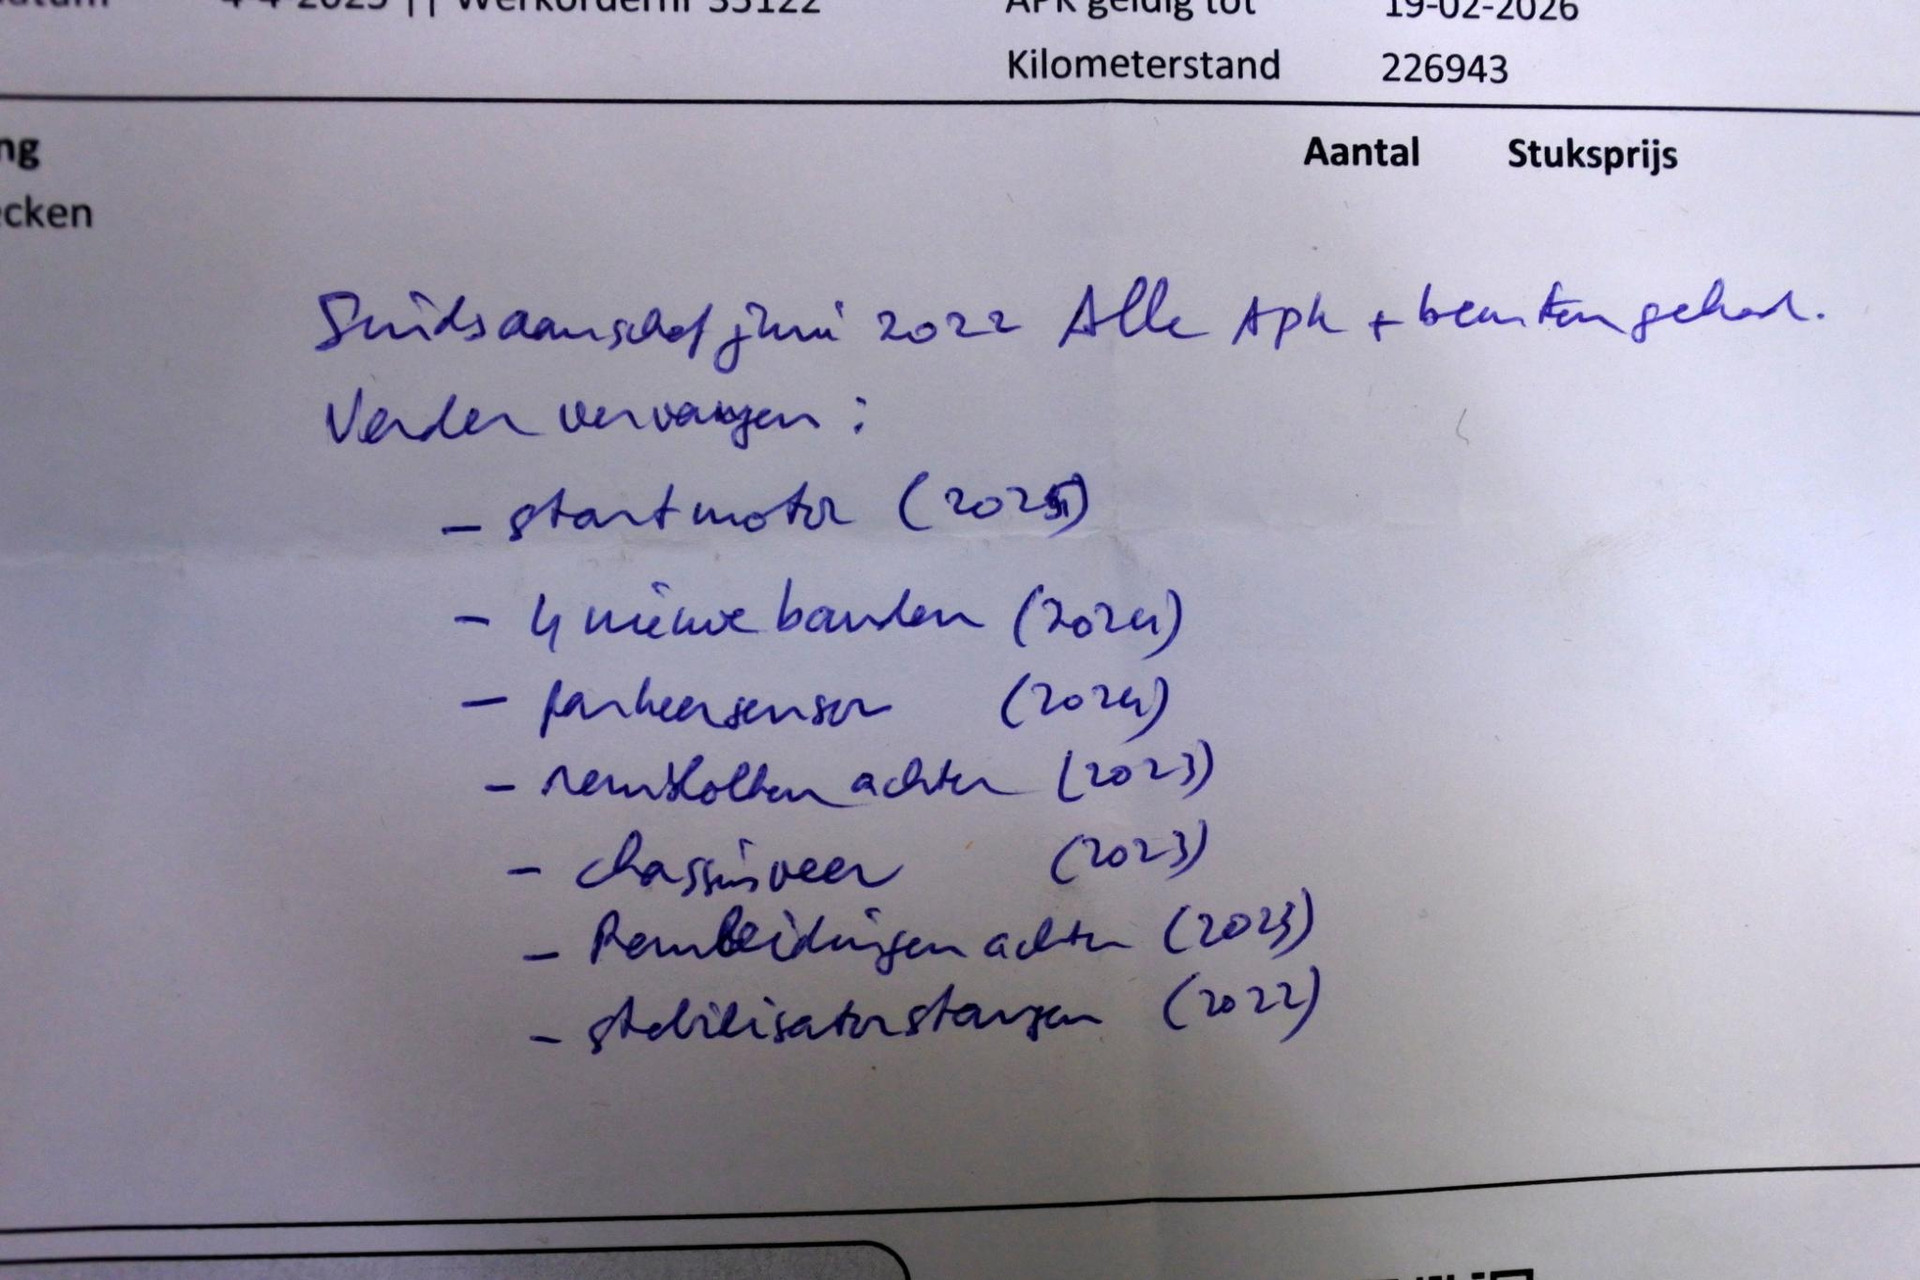 4-4-2025 || Werkordernr 35122 APK geldig tot 19-02-2026
Kilometerstand 226943
ng Aantal Stuksprijs
ecken
Sinds aanschaf juni 2022 Alle Apk + beurten gehad.
Verder vervangen :
- startmotor (2025)
- 4 nieuwe banden (2024)
- parkeersensor (2024)
- remblokken achter (2023)
- chassisveer (2023)
- Remleidingen achter (2023)
- stabilisatorstangen (2022)